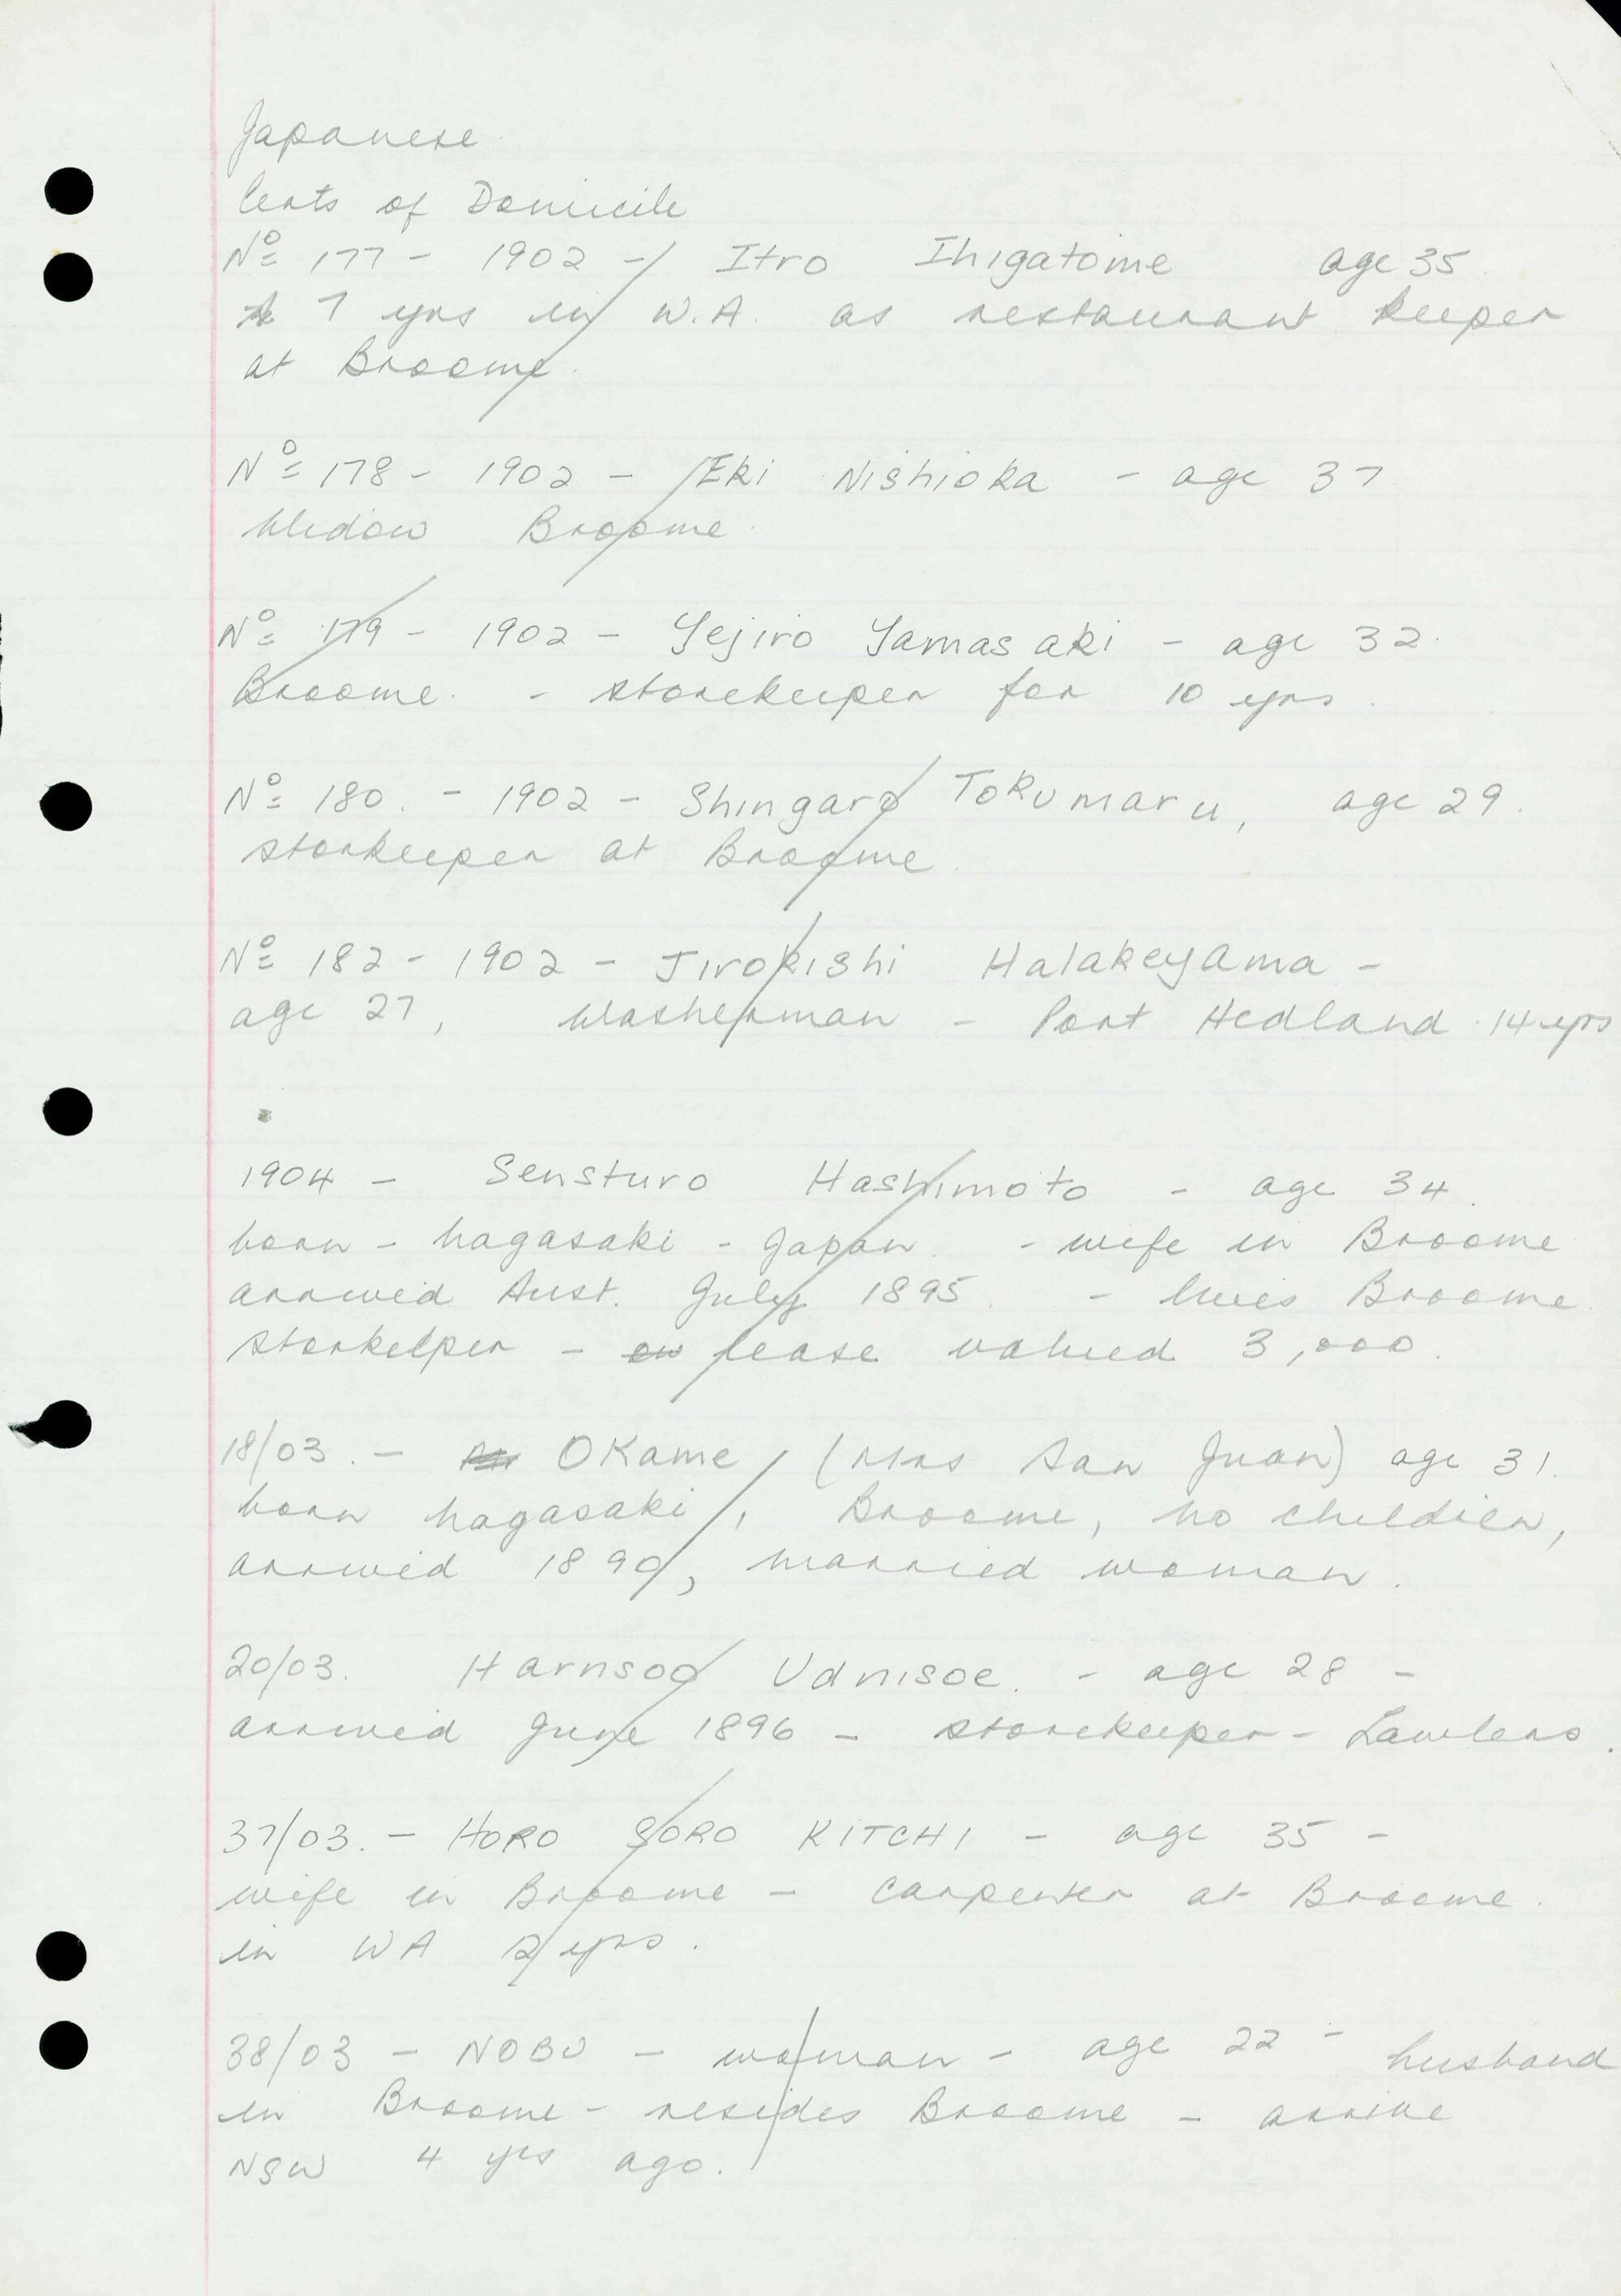 Japanese
Certs of Domicile
Nº 177 - 1902 - Itro Ihigatome age 35
7 yrs in W.A. as restaurant keeper
at Broome.
Nº 178 - 1902 - Eki Nishioka - age 37
Widow Broome.
Nº 179 - 1902 - Yejiro Yamasaki - age 32.
Broome. - storekeeper for 10 yrs.
Nº 180. - 1902 - Shingaro Tokumaru, age 29.
storkeeper at Broome.
Nº 182 - 1902 - Jirokishi Halakeyama -
age 27, Washerman - Port Hedland 14 yrs
1904 - Sensturo Hashimoto - age 34.
born - Nagasaki - Japan. - wife in Broome
arrived Aust. July 1895. - lives Broome.
storkeeper - lease valued 3,000.
18/03. - Okame (Mrs San Juan) age 31.
born Nagasaki, Broome, no children,
arrived 1890, married woman.
20/03. Harnsoo Udnisoe. - age 28 -
arrived June 1896 - storekeeper - Lawlers.
37/03. - HORO SORO KITCHI - age 35 -
wife in Broome - carpenter at Broome.
in WA 12 yrs.
38/03 - NOBU - woman - age 22 - husband
in Broome - resides Broome - arrive
NSW 4 yrs ago.